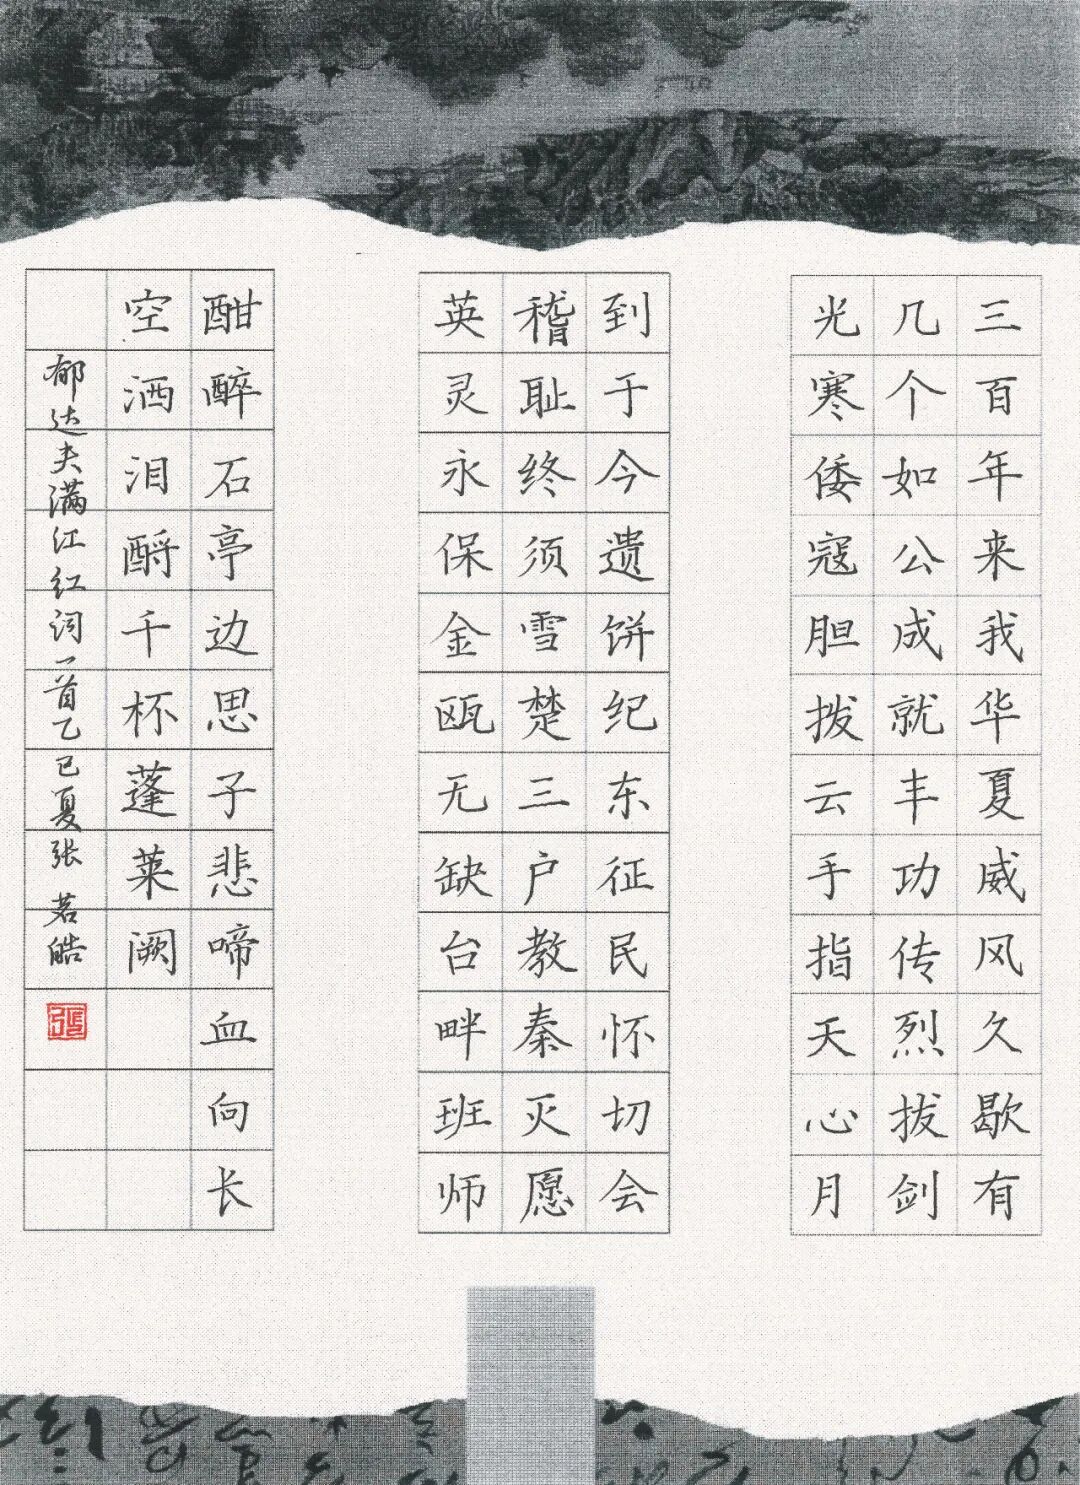 三百年来我华夏威风久歇有
几个如公成就丰功传烈拔剑
光寒倭寇胆拨云手指天心月
到于今遗饼纪东征民怀切会
稽耻终须雪楚三户教秦灭愿
英灵永保金瓯无缺台畔班师
酣醉石亭边思子悲啼血向长
空洒泪酹千杯蓬莱阙
郁达夫满江红词一首乙巳夏张若皓
张